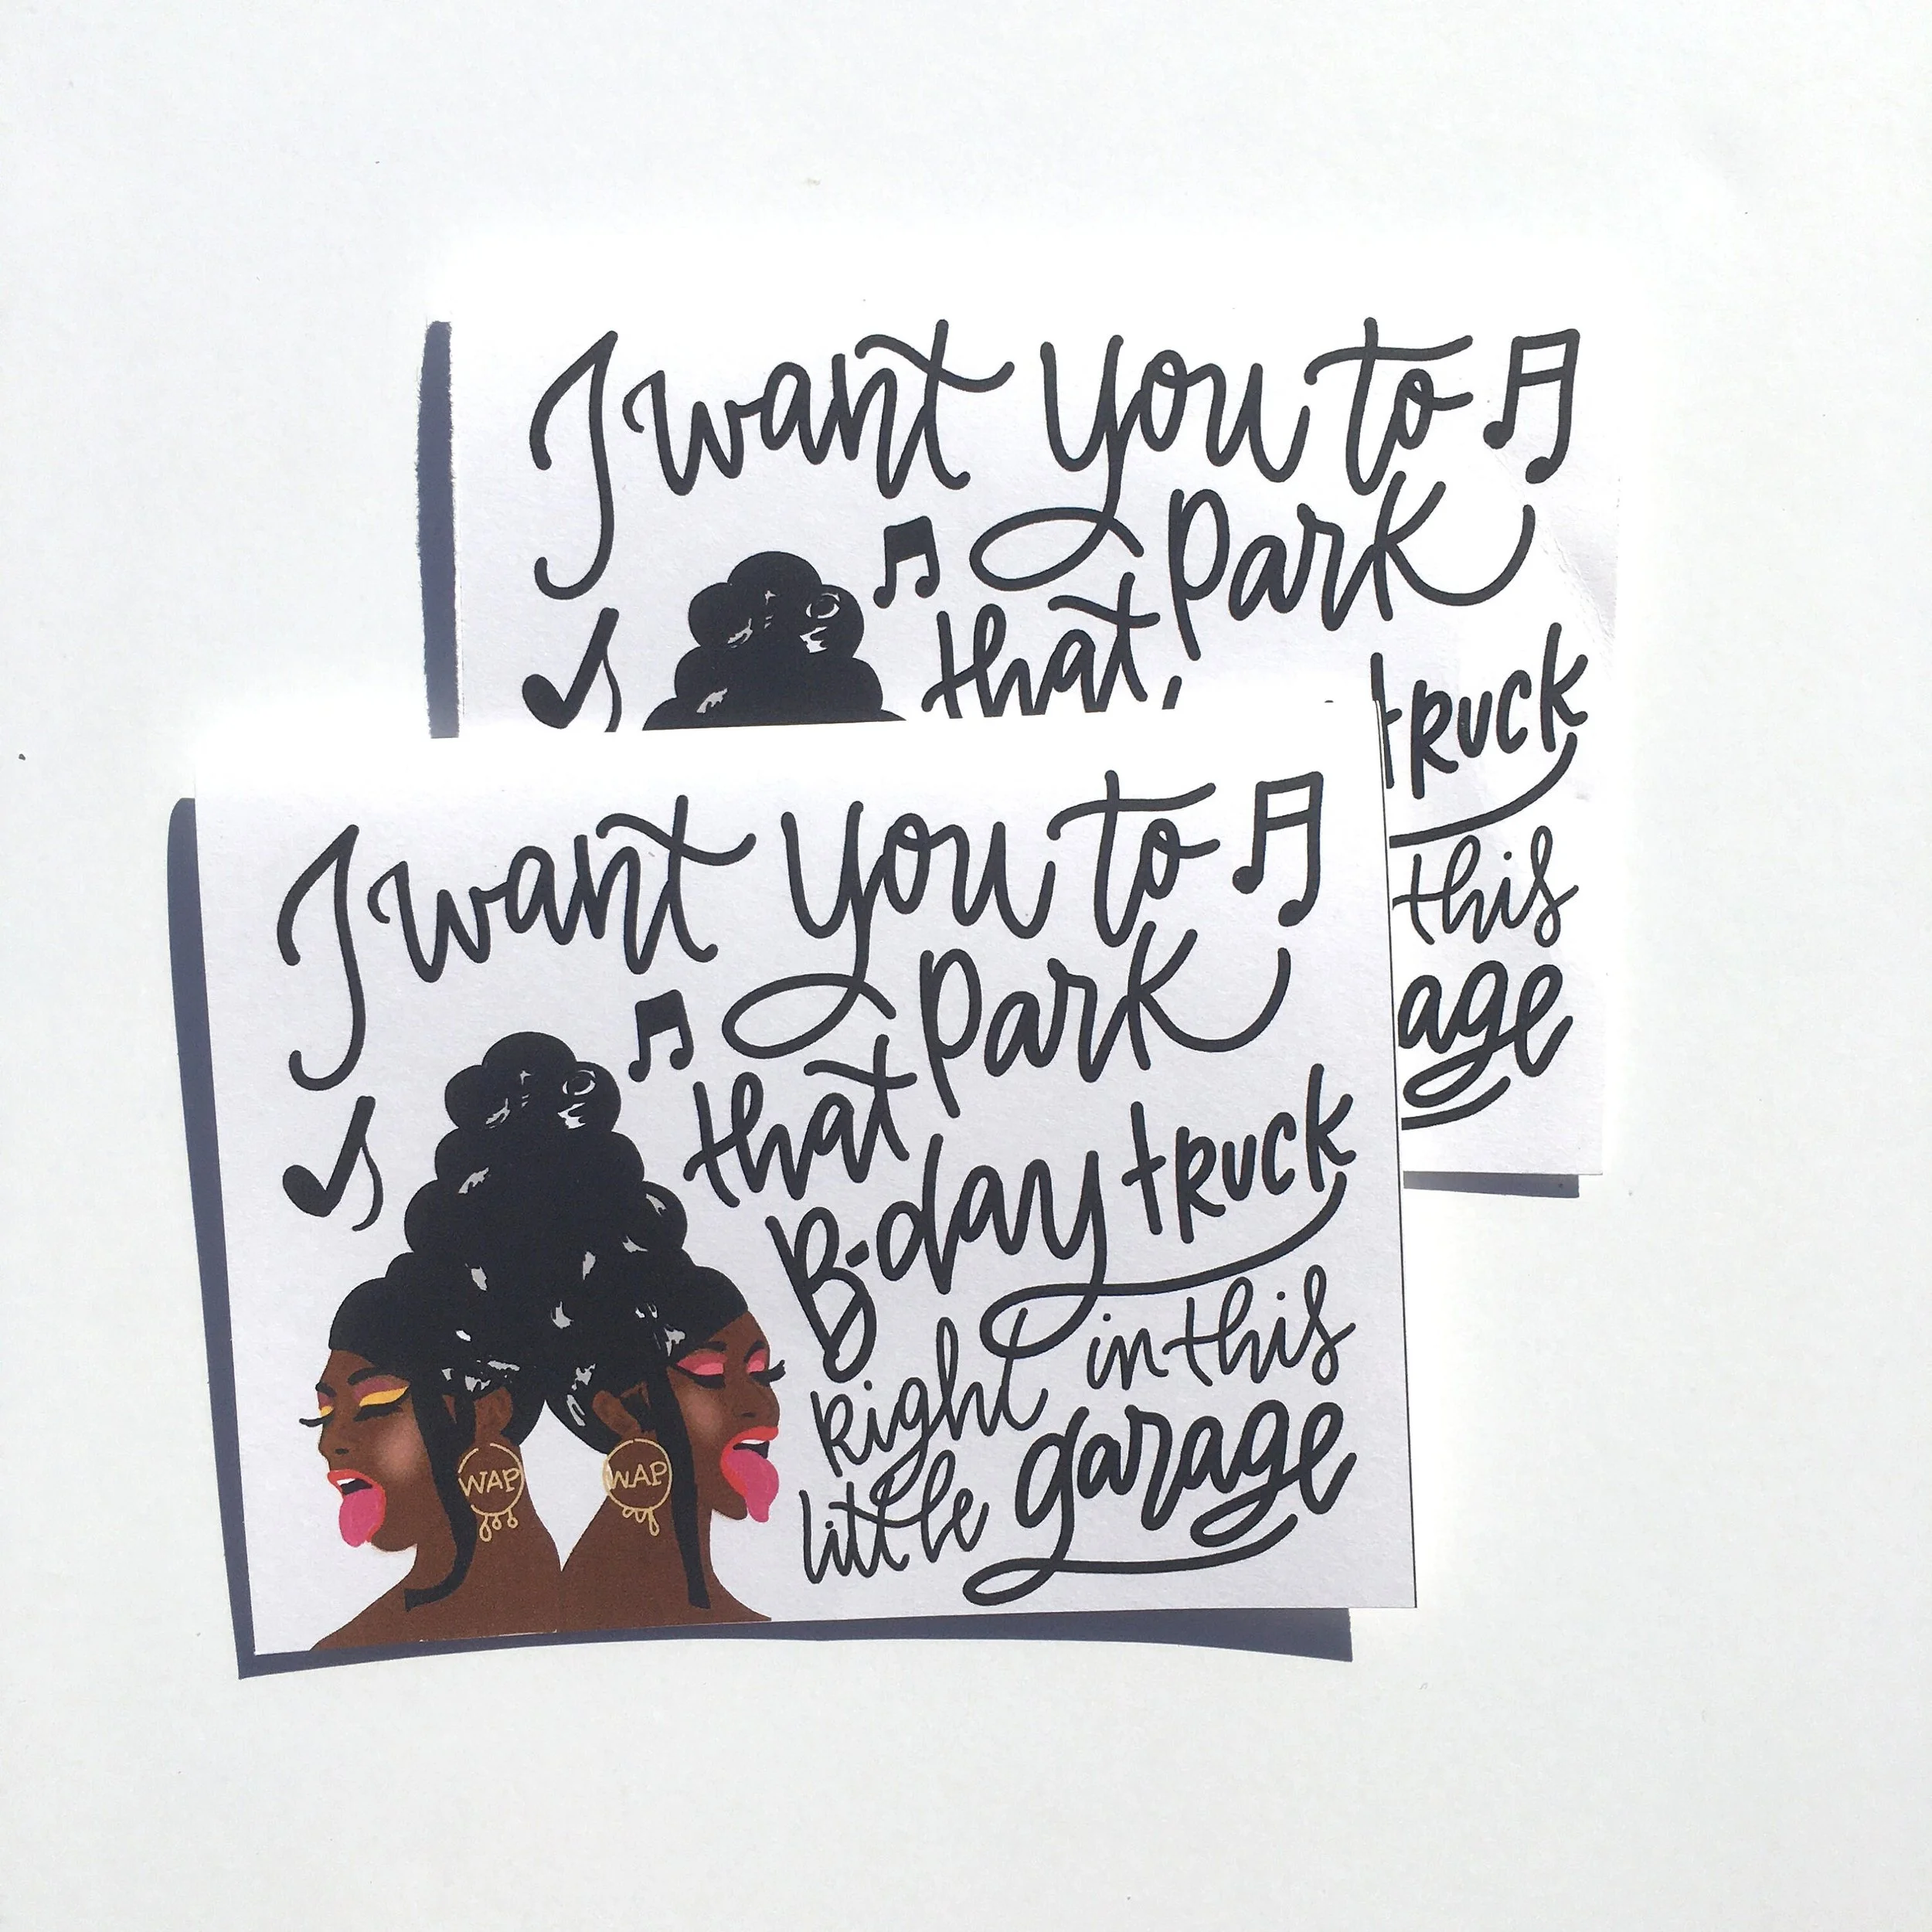 I want you to
Park
that
truck
this
age
I want you to
Park
that
B-day truck
Right in this
little garage
WAP WAP